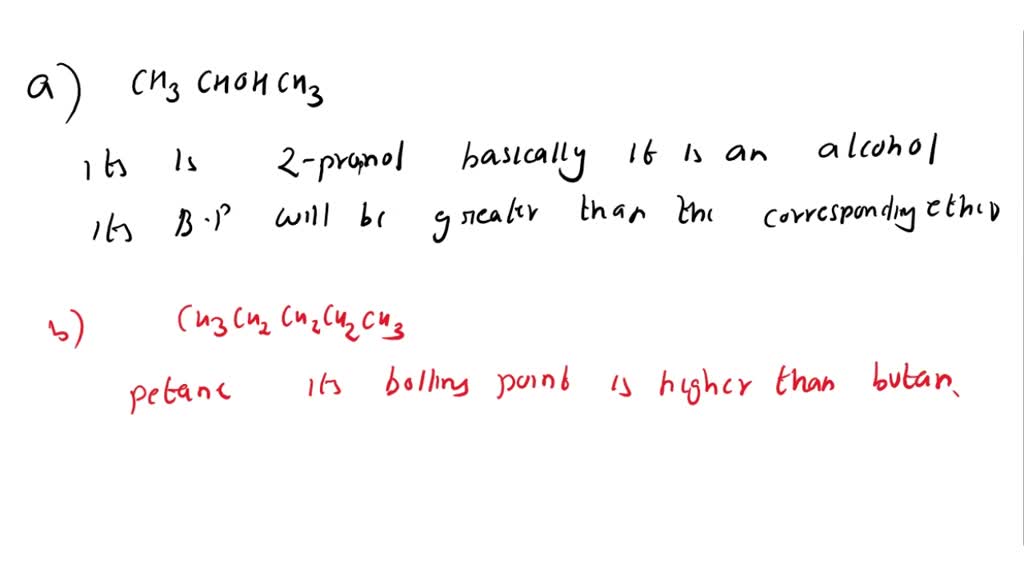 a) CH3 CHOH CH3
its is 2-propnol basically it is an alcohol
its B.P will be greater than the corresponding ether
b) CH3 CH2 CH2 CH2 CH3
petane its boiling point is higher than butan